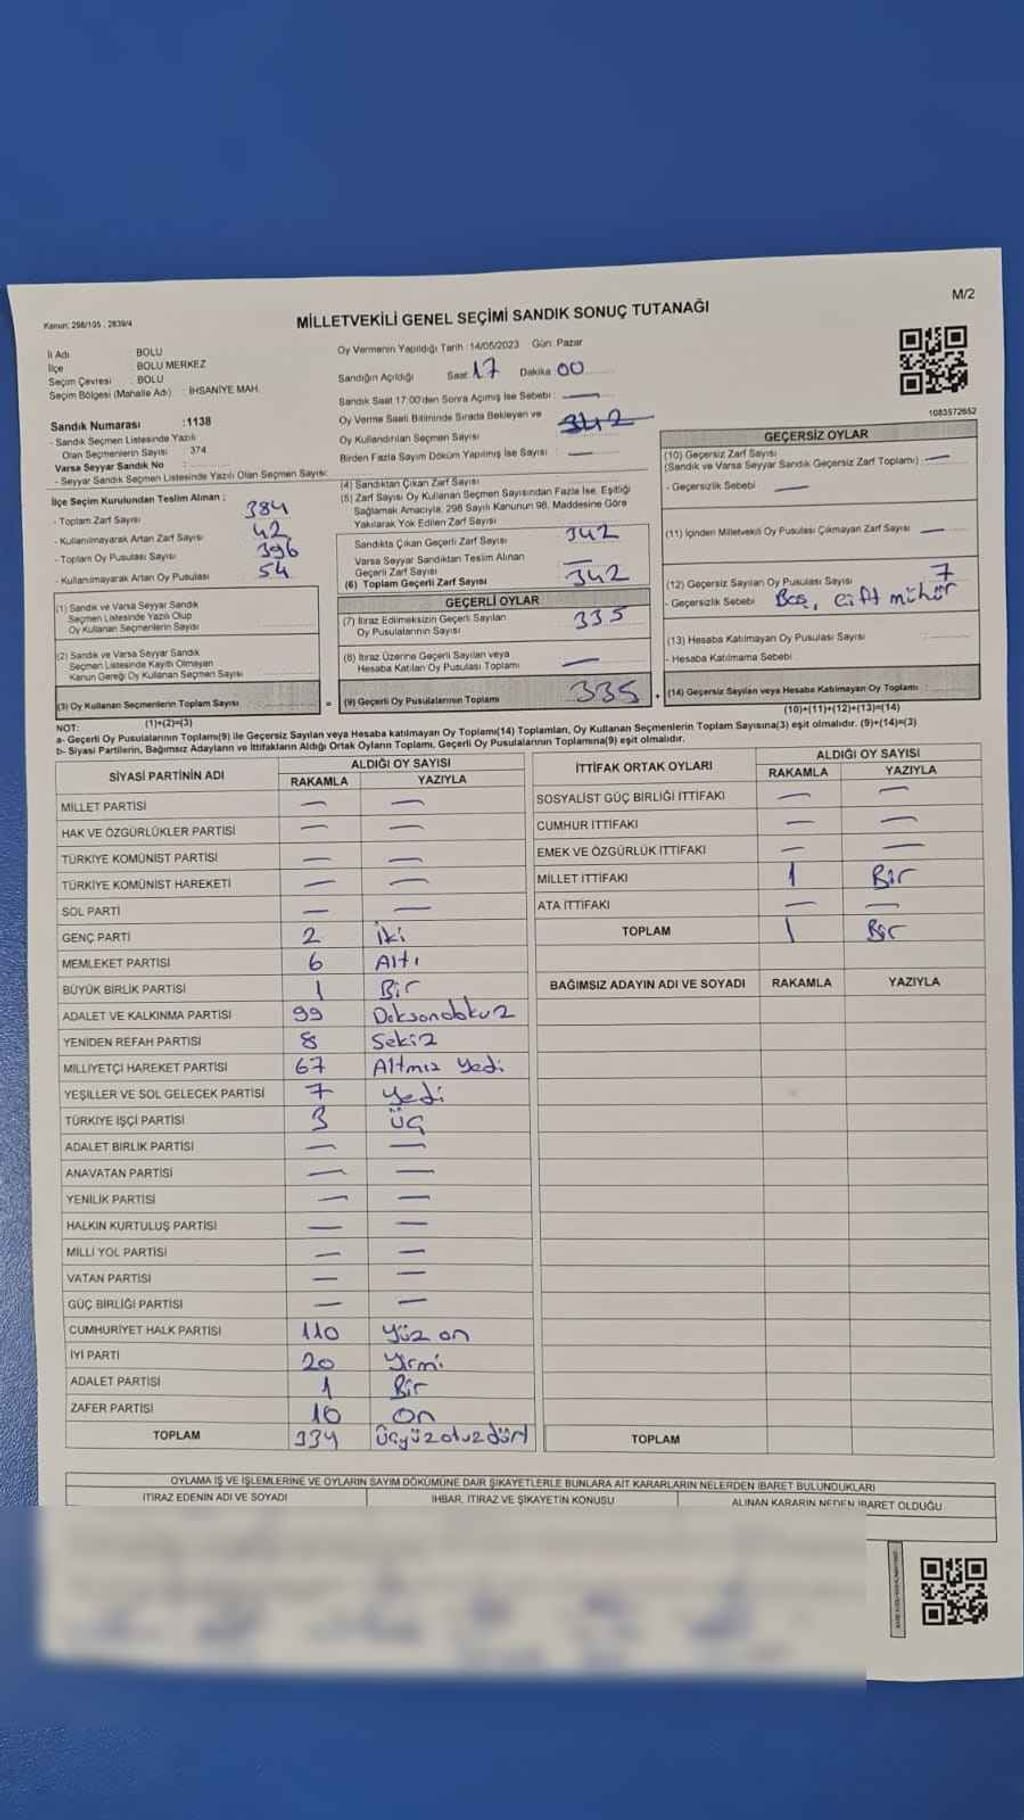 M/2
Kanun: 298/105 , 2839/4
MİLLETVEKİLİ GENEL SEÇİMİ SANDIK SONUÇ TUTANAĞI
İl Adı BOLU
İlçe BOLU MERKEZ
Seçim Çevresi BOLU
Seçim Bölgesi (Mahalle Adı) : İHSANİYE MAH.
Oy Vermenin Yapıldığı Tarih : 14/05/2023 Gün: Pazar
Sandığın Açıldığı Saat 17 Dakika 00
Sandık Saat 17:00'den Sonra Açımış İse Sebebi : —
Oy Verme Saati Bitiminde Sırada Bekleyen ve
Oy Kullandırılan Seçmen Sayısı 342
Birden Fazla Sayım Döküm Yapılmış İse Sayısı : —
1083572652
Sandık Numarası :1138
- Sandık Seçmen Listesinde Yazılı
Olan Seçmenlerin Sayısı : 374
Varsa Seyyar Sandık No :
- Seyyar Sandık Seçmen Listesinde Yazılı Olan Seçmen Sayısı:
İlçe Seçim Kurulundan Teslim Alınan :
- Toplam Zarf Sayısı 384
- Kullanılmayarak Artan Zarf Sayısı 42
- Toplam Oy Pusulası Sayısı 396
- Kullanılmayarak Artan Oy Pusulası 54
(1) Sandık ve Varsa Seyyar Sandık
Seçmen Listesinde Yazılı Olup
Oy Kullanan Seçmenlerin Sayısı
(2) Sandık ve Varsa Seyyar Sandık
Seçmen Listesinde Kayıtlı Olmayan
Kanun Gereği Oy Kullanan Seçmen Sayısı
(3) Oy Kullanan Seçmenlerin Toplam Sayısı
(1)+(2)=(3)
(4) Sandıktan Çıkan Zarf Sayısı
(5) Zarf Sayısı Oy Kullanan Seçmen Sayısından Fazla İse, Eşitliği
Sağlamak Amacıyla, 298 Sayılı Kanunun 98. Maddesine Göre
Yakılarak Yok Edilen Zarf Sayısı
Sandıkta Çıkan Geçerli Zarf Sayısı 342
Varsa Seyyar Sandıktan Teslim Alınan
Geçerli Zarf Sayısı —
(6) Toplam Geçerli Zarf Sayısı 342
GEÇERLİ OYLAR
(7) İtiraz Edilmeksizin Geçerli Sayılan
Oy Pusulalarının Sayısı 335
(8) İtiraz Üzerine Geçerli Sayılan veya
Hesaba Katılan Oy Pusulası Toplamı —
= (9) Geçerli Oy Pusulalarının Toplamı 335 +
GEÇERSİZ OYLAR
(10) Geçersiz Zarf Sayısı
(Sandık ve Varsa Seyyar Sandık Geçersiz Zarf Toplamı) —
- Geçersizlik Sebebi —
(11) İçinden Milletvekili Oy Pusulası Çıkmayan Zarf Sayısı —
(12) Geçersiz Sayılan Oy Pusulası Sayısı 7
- Geçersizlik Sebebi Boş, çift mühür
(13) Hesaba Katılmayan Oy Pusulası Sayısı
- Hesaba Katılmama Sebebi
(14) Geçersiz Sayılan veya Hesaba Katılmayan Oy Toplamı :
(10)+(11)+(12)+(13)=(14)
NOT:
a- Geçerli Oy Pusulalarının Toplamı(9) ile Geçersiz Sayılan veya Hesaba katılmayan Oy Toplamı(14) Toplamları, Oy Kullanan Seçmenlerin Toplam Sayısına(3) eşit olmalıdır. (9)+(14)=(3)
b- Siyasi Partilerin, Bağımsız Adayların ve İttifakların Aldığı Ortak Oyların Toplamı, Geçerli Oy Pusulalarının Toplamına(9) eşit olmalıdır.
SİYASİ PARTİNİN ADI ALDIĞI OY SAYISI
RAKAMLA YAZIYLA
MİLLET PARTİSİ — —
HAK VE ÖZGÜRLÜKLER PARTİSİ — —
TÜRKİYE KOMÜNİST PARTİSİ — —
TÜRKİYE KOMÜNİST HAREKETİ — —
SOL PARTİ — —
GENÇ PARTİ 2 İki
MEMLEKET PARTİSİ 6 Altı
BÜYÜK BİRLİK PARTİSİ 1 Bir
ADALET VE KALKINMA PARTİSİ 99 Doksandokuz
YENİDEN REFAH PARTİSİ 8 Sekiz
MİLLİYETÇİ HAREKET PARTİSİ 67 Altmız yedi
YEŞİLLER VE SOL GELECEK PARTİSİ 7 yedi
TÜRKİYE İŞÇİ PARTİSİ 3 üç
ADALET BİRLİK PARTİSİ — —
ANAVATAN PARTİSİ — —
YENİLİK PARTİSİ — —
HALKIN KURTULUŞ PARTİSİ — —
MİLLİ YOL PARTİSİ — —
VATAN PARTİSİ — —
GÜÇ BİRLİĞİ PARTİSİ — —
CUMHURİYET HALK PARTİSİ 110 yüz on
İYİ PARTİ 20 yirmi
ADALET PARTİSİ 1 Bir
ZAFER PARTİSİ 10 on
TOPLAM 334 üçyüzotuzdört
İTTİFAK ORTAK OYLARI ALDIĞI OY SAYISI
RAKAMLA YAZIYLA
SOSYALİST GÜÇ BİRLİĞİ İTTİFAKI — —
CUMHUR İTTİFAKI — —
EMEK VE ÖZGÜRLÜK İTTİFAKI — —
MİLLET İTTİFAKI 1 Bir
ATA İTTİFAKI — —
TOPLAM 1 Bir
BAĞIMSIZ ADAYIN ADI VE SOYADI RAKAMLA YAZIYLA
TOPLAM
OYLAMA İŞ VE İŞLEMLERİNE VE OYLARIN SAYIM DÖKÜMÜNE DAİR ŞİKAYETLERLE BUNLARA AİT KARARLARIN NELERDEN İBARET BULUNDUKLARI
İTİRAZ EDENİN ADI VE SOYADI İHBAR, İTİRAZ VE ŞİKAYETİN KONUSU ALINAN KARARIN NEDEN İBARET OLDUĞU